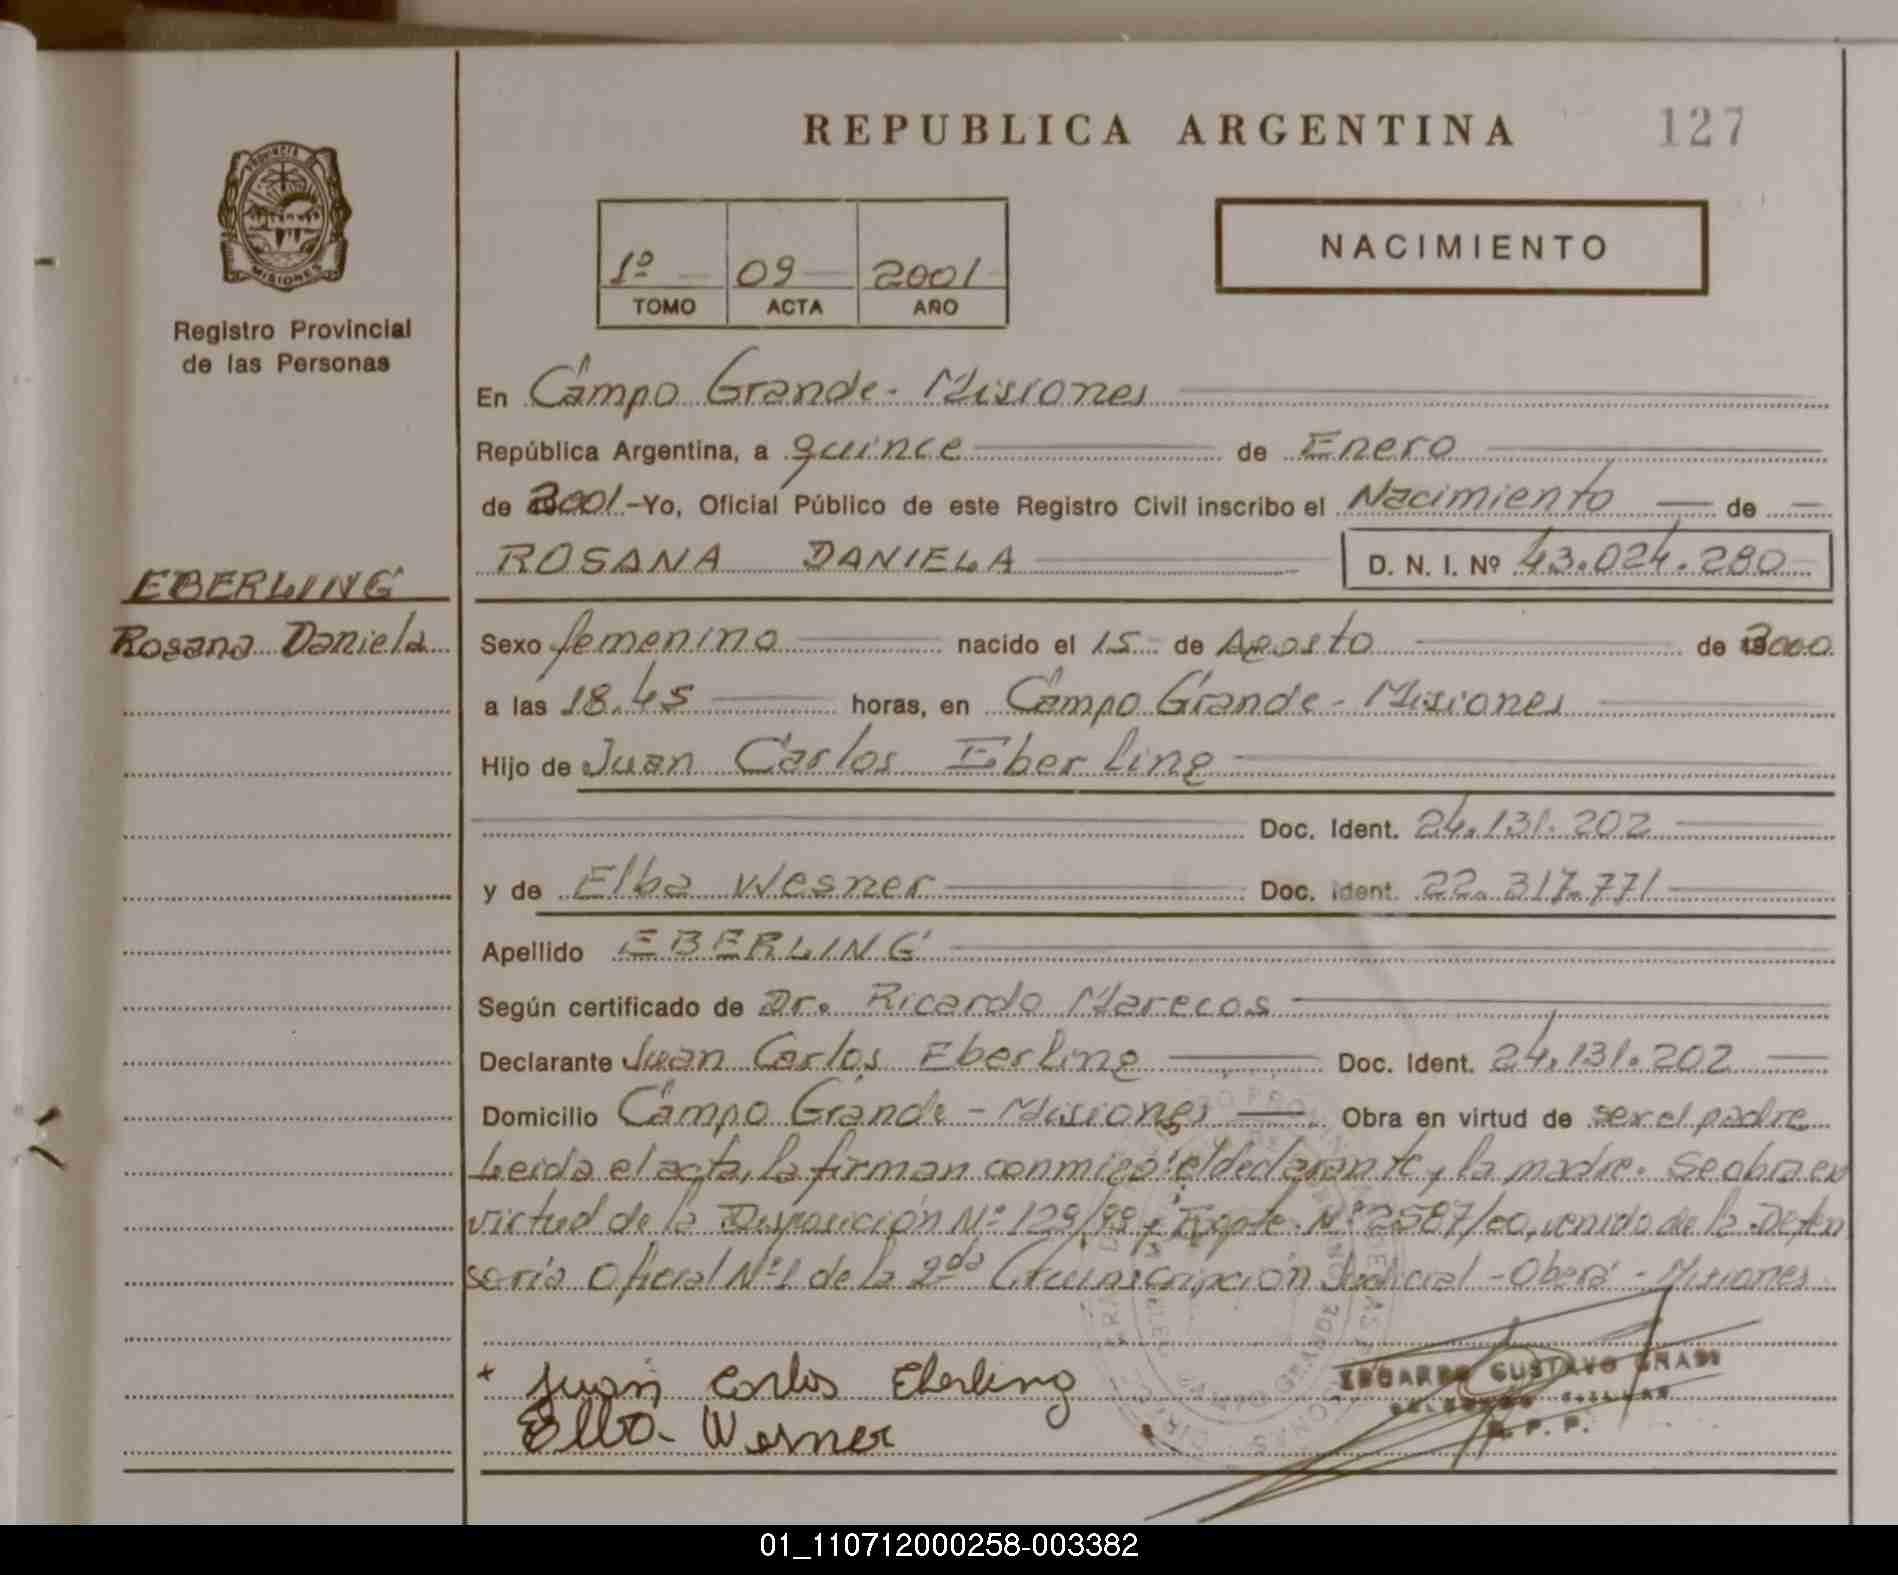 REPUBLICA ARGENTINA 127
PROVINCIA DE MISIONES
Registro Provincial
de las Personas
1º 09 2001
TOMO ACTA AÑO
NACIMIENTO
En Campo Grande - Misiones
República Argentina, a quince de Enero
de 2001 - Yo, Oficial Público de este Registro Civil inscribo el Nacimiento de
ROSANA DANIELA D. N. I. Nº 43.024.280
EBERLING
Rosana Daniela
Sexo femenino nacido el 15 de Agosto de 2000
a las 18.45 horas, en Campo Grande - Misiones
Hijo de Juan Carlos Eberling
Doc. Ident. 24.131.202
y de Elba Wesner Doc. Ident. 22.317.771
Apellido EBERLING
Según certificado de Dr. Ricardo Marecos
Declarante Juan Carlos Eberling Doc. Ident. 24.131.202
Domicilio Campo Grande - Misiones Obra en virtud de ser el padre
Leida el acta, la firman conmigo: el declarante y la madre. Se obra en
virtud de la Disposición Nº 129/99 y Expte. Nº 2587/00, venido de la Defen
soría Oficial Nº1 de la 2da Circunscripción Judicial - Oberá - Misiones
+ Juan Carlos Eberling
Elba Wesner
GUSTAVO
R. P. P.
01_110712000258-003382